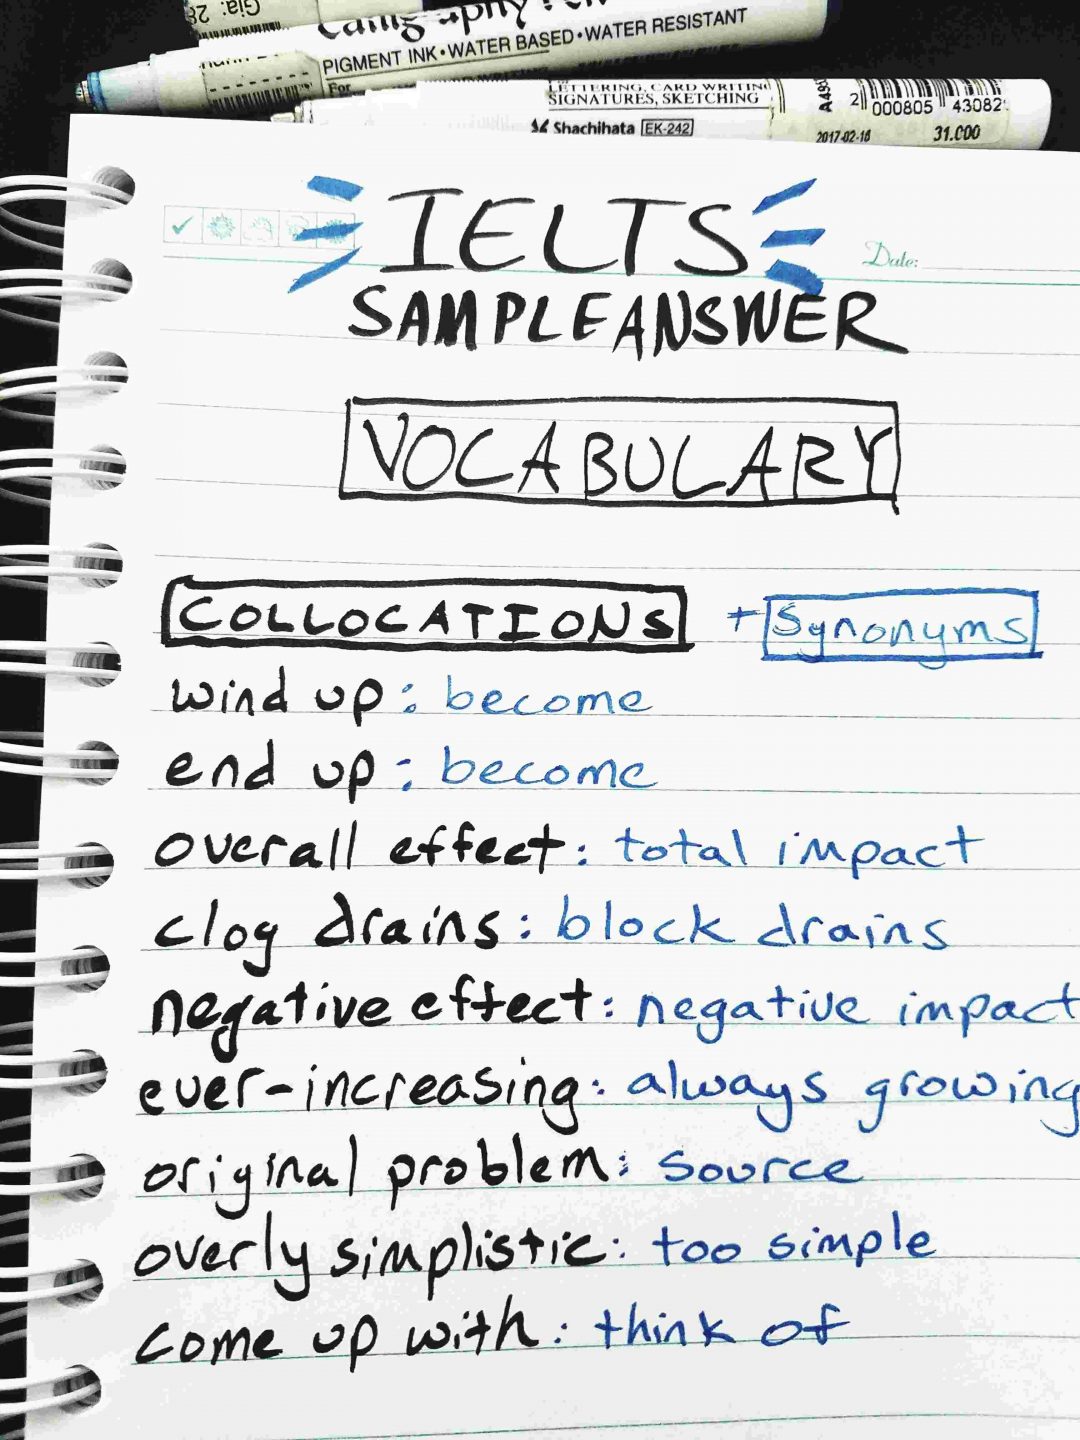 Gia: 28
PIGMENT INK•WATER BASED•WATER RESISTANT
For
LETTERING, CARD WRITING
SIGNATURES, SKETCHING
Shachihata EK-242
A
2 000805 43082
2017-02-16 31.000
IELTS
Date:
SAMPLE ANSWER
VOCABULARY
COLLOCATIONS + Synonyms
wind up: become
end up: become
overall effect: total impact
clog drains: block drains
negative effect: negative impact
ever-increasing: always growing
original problem: source
overly simplistic: too simple
come up with: think of